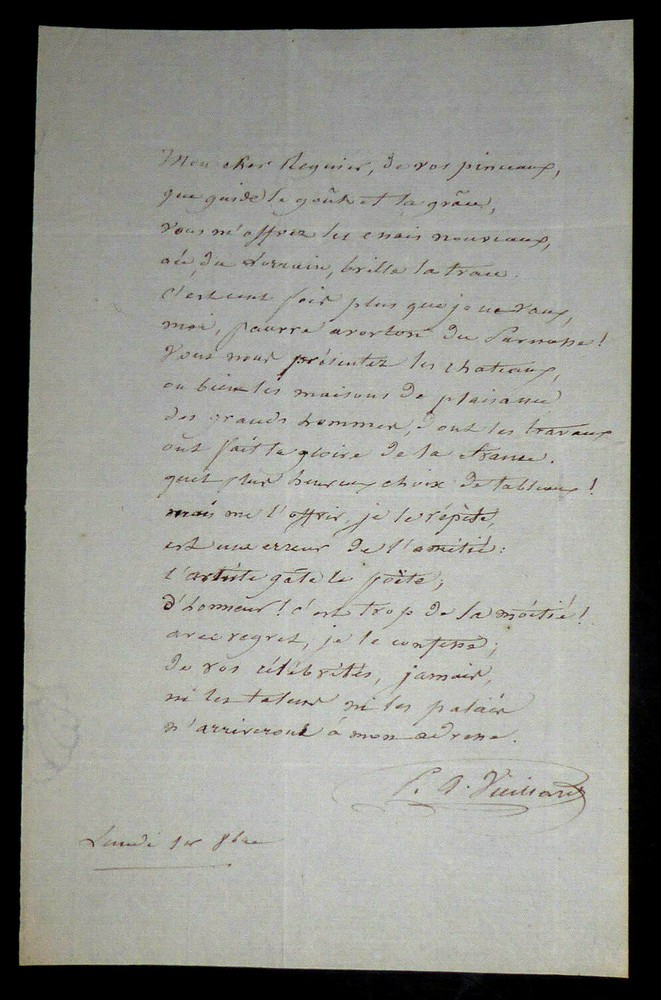 Mon cher Regnier, de vos pinceaux,
que guide le goût et la grâce,
vous m'offrez les essais nouveaux,
où, du Lorrain, brille la trace.
c'est cent fois plus que je ne vaux,
moi, pauvre avorton du Parnasse!
Vous nous présentez les chateaux,
ou bien les maisons de plaisance
des grands hommes, dont les travaux
ont fait la gloire de la france.
quel plus heureux choix de tableaux!
mais me l'offrir, je le répète,
est une erreur de l'amitié:
l'artiste gâte le poëte;
d'honneur! c'est trop de la moitié!
avec regret, je le confesse;
de vos célébrités, jamais,
ni les talens ni les palais
n'arriveront à mon adresse.
P. A. Vieillard
Lundi 1er 8bre